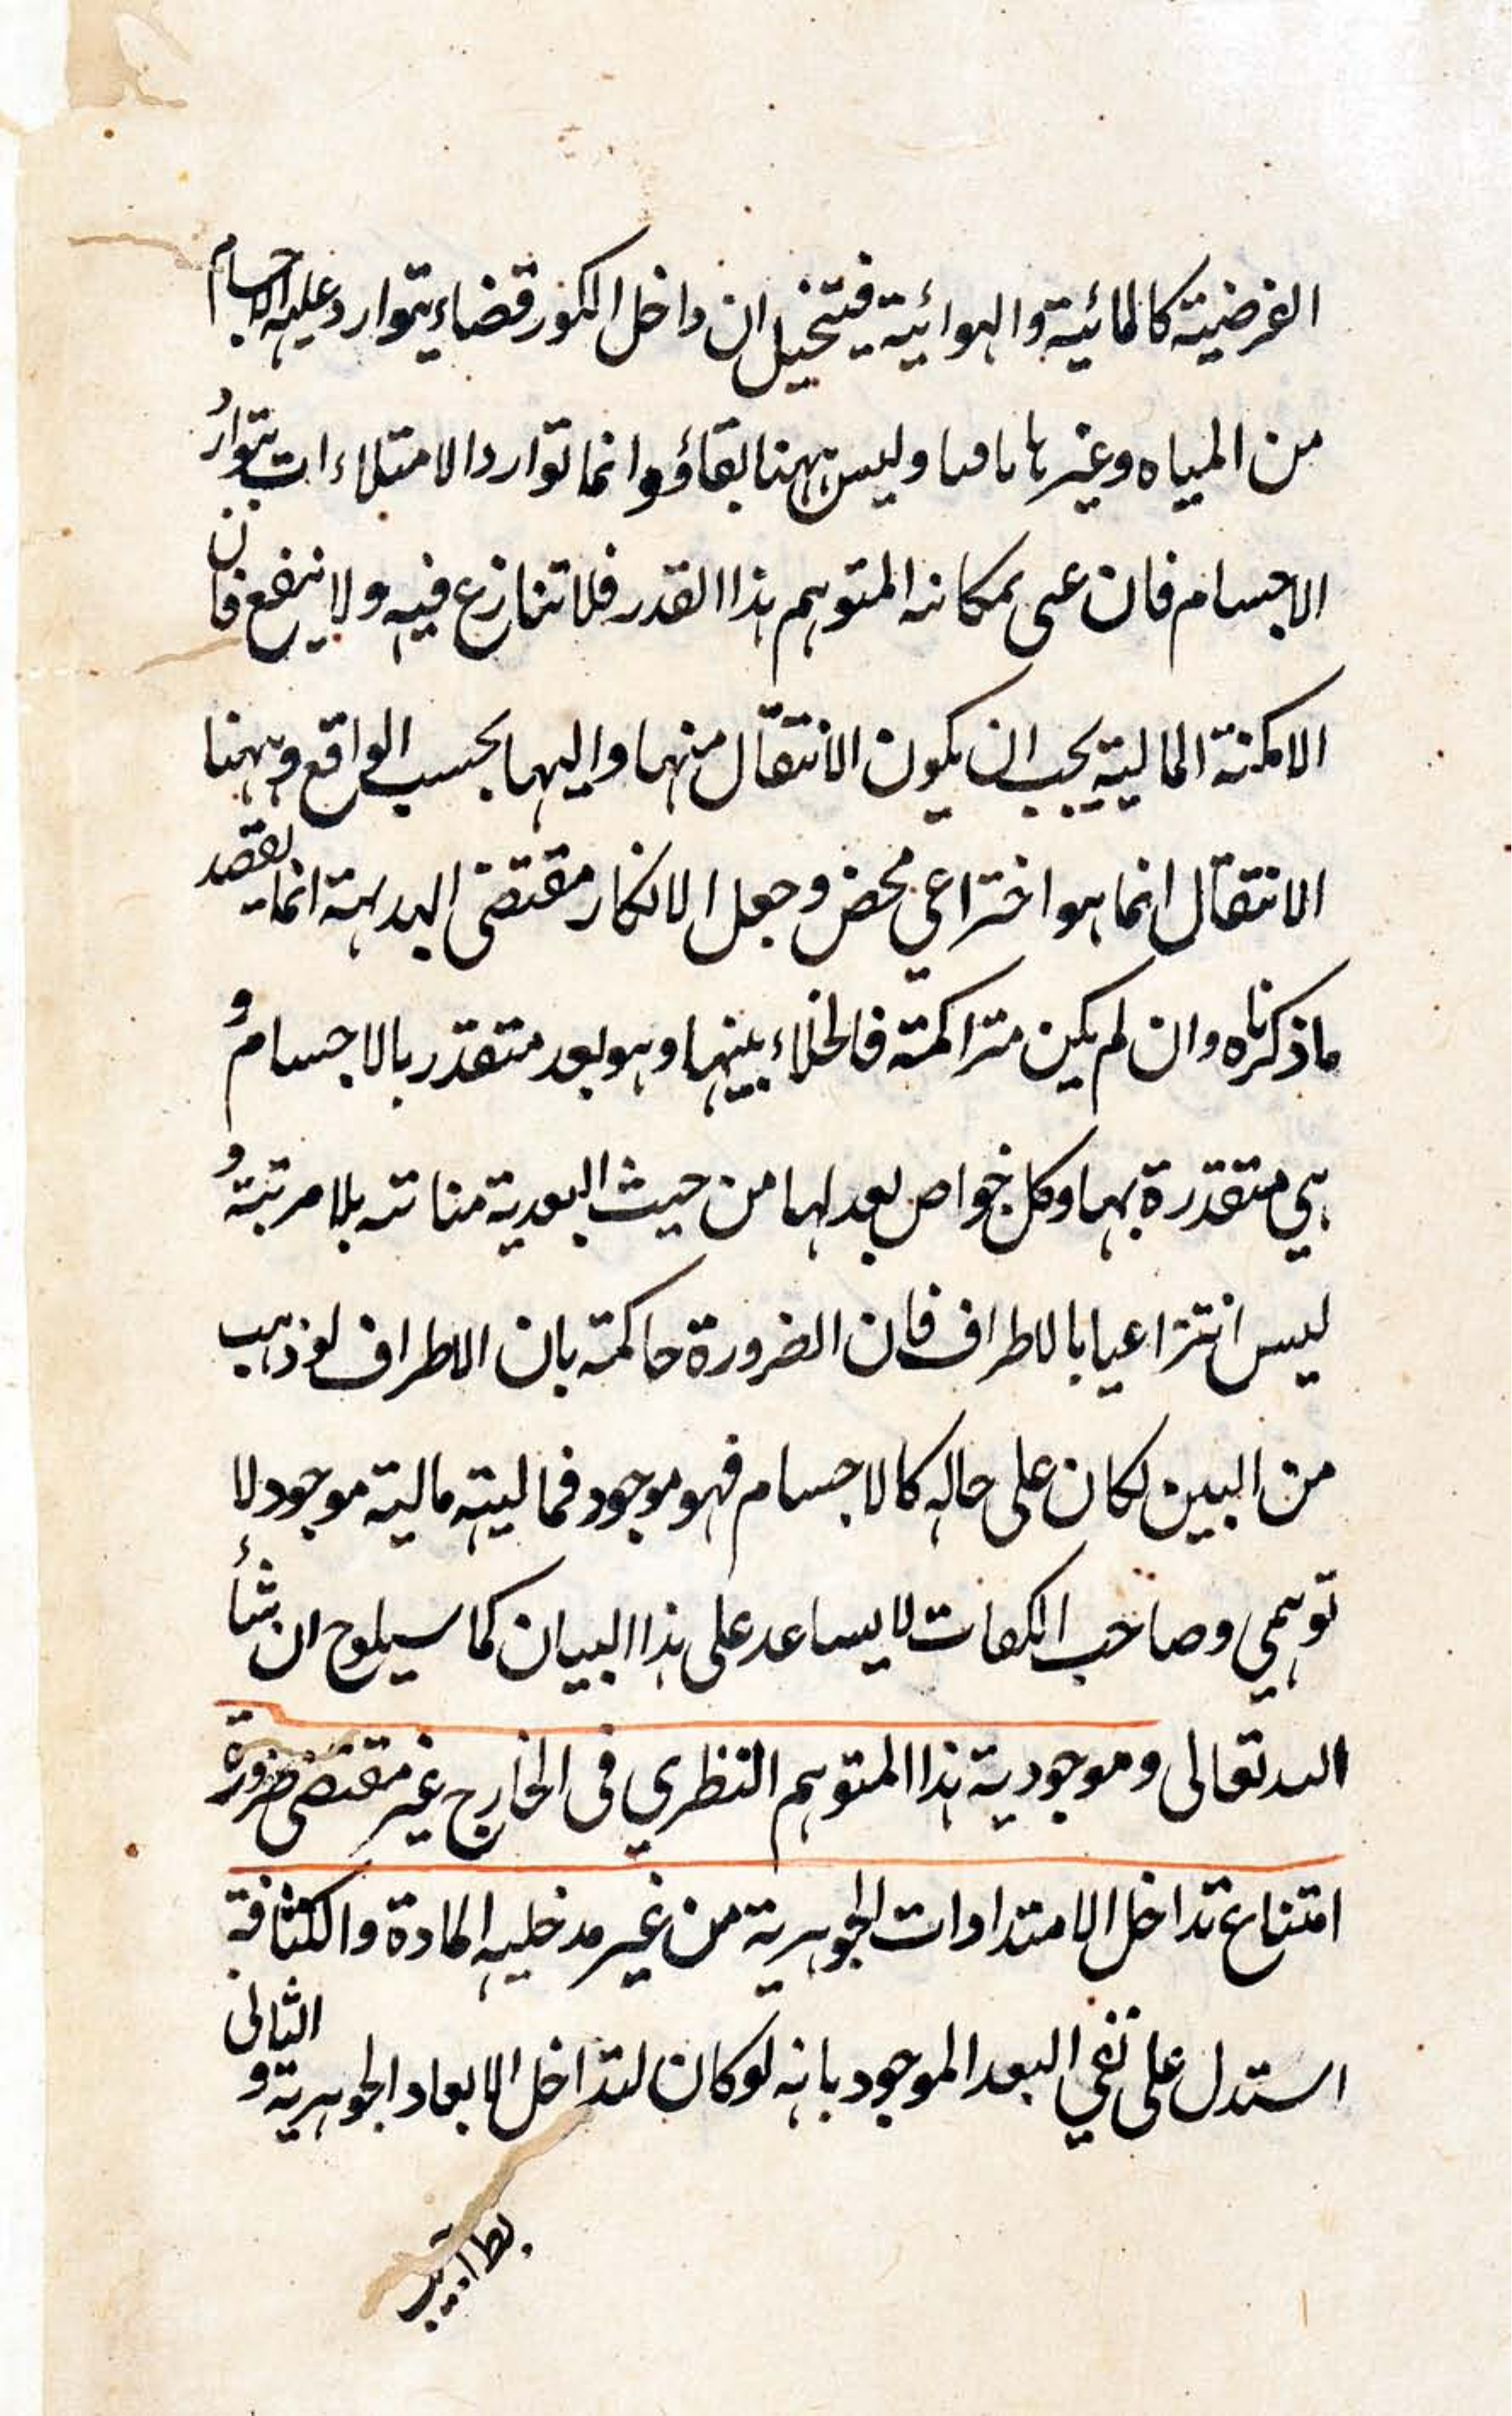 الفرضية كالمائية والهوائية فيتخيل ان داخل الكوز فضاء يتوارد عليه الاجسام
من المياه وغيرها باقيا وليس ههنا بقاؤه وانما توارد الامتلاءات بتوارد
الاجسام فان عنى بمكانه المتوهم هذا القدر فلا تنازع فيه ولا ينفع فان
الامكنة المالية يجب ان يكون الانتقال منها واليها بحسب الواقع وههنا
الانتقال انما هو اختراعي محض وجعل الانكار مقتضى البداهة انما يقصد
ما ذكرناه وان لم يكن متراكمة فالخلاء بينها وهو بعد متقدر بالاجسام و
هي متقدرة بها وكل خواص بعد لها من حيث البعدية بلا مرتبة و
ليس انتزاعيا بالاطراف فان الضرورة حاكمة بان الاطراف لو ذهب
من البين لكان على حاله كالاجسام فهو موجود فماليته مالية موجود لا
توهمي وصاحب لا يساعد على هذا البيان كما سيلوح ان شاء
الله تعالى وموجودية هذا المتوهم النظري في الخارج غير مقتضى ضرورة
امتناع تداخل الامتدادات الجوهرية من غير مدخلية المادة والكثافة
استدل على نفي البعد الموجود بانه لو كان لتداخل الابعاد الجوهرية والتالى